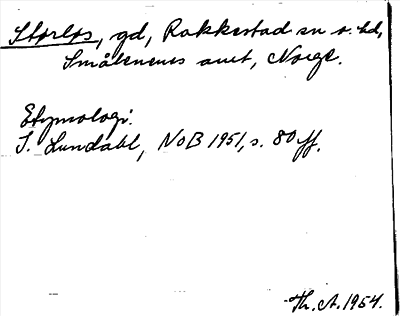 Storløs, gd, Rakkestad sn o. hd,
Smålenenes amt, Norge.
Etymologi.
I. Lundahl, NoB 1951, s. 80 ff.
Th. A. 1954.